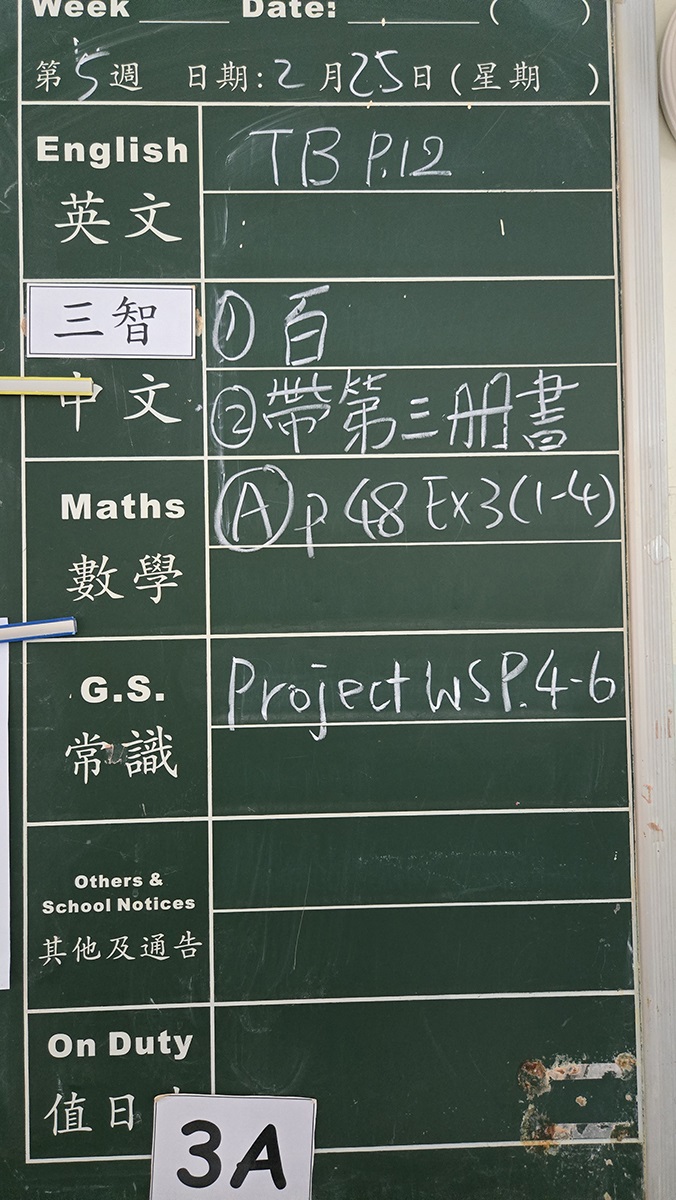 Week ____ Date: ________ ( )
第5週 日期:2月25日(星期 )
English
TB P.12
英文
三智
① 百
中文
②帶第三册書
Maths
Ⓐ P 48 Ex3(1-4)
數學
G.S.
Project WS P.4-6
常識
Others &
School Notices
其他及通告
On Duty
值日
3A